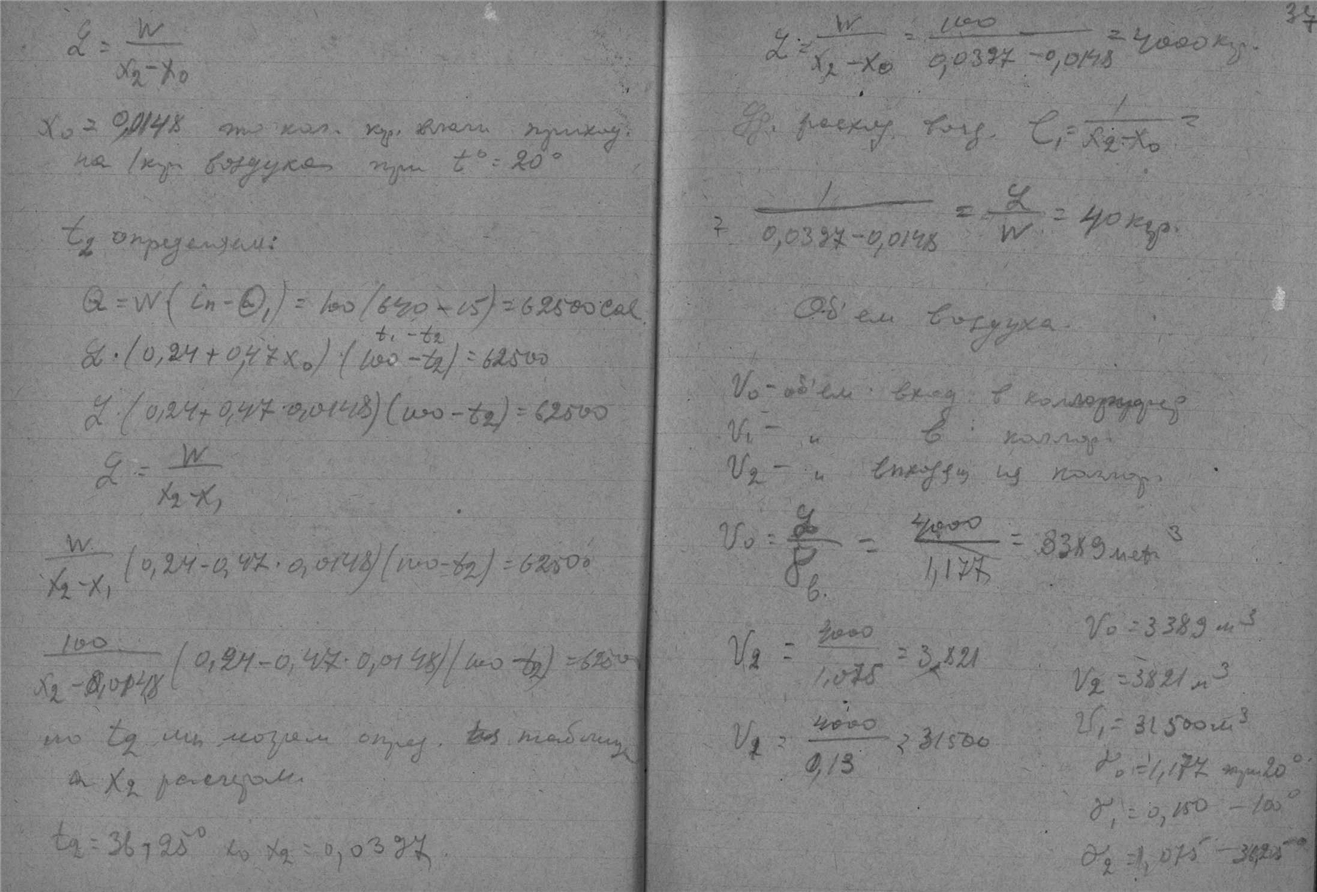 L = W / (x₂ - x₀)
x₀ = 0,0148 то кол. кгр. влаги приход.
на 1 кгр воздуха при t° = 20°
t₂ определяем:
Q = W (iп - Q₁) = 100 (640 - 15) = 62500 Cal.
t₁ - t₂
L · (0,24 + 0,47 x₀) · (100 - t₂) = 62500
L · (0,24 + 0,47 · 0,0148) (100 - t₂) = 62500
L = W / (x₂ - x₁)
W / (x₂ - x₁) (0,24 - 0,47 · 0,0148) (100 - t₂) = 62500
100 / (x₂ - 0,0148) (0,24 - 0,47 · 0,0148) (100 - t₂) = 62500
по t₂ мы можем опред. таблице
а x₂ расчетом.
t₂ = 36,25° x₂ = 0,0397.
37
L = W / (x₂ - x₀) = 100 / (0,0397 - 0,0148) = 4000 кгр.
расход возд. l₁ = 1 / (x₂ - x₀) =
= 1 / (0,0397 - 0,0148) = L / W = 40 кгр.
Объем воздуха.
V₀ - объем вход. в
V₁ - " в калор.
V₂ - " выходящ из калор.
V₀ = L / γ в. = 4000 / 1,177 = 3389 мет³
V₂ = 4000 / 1,075 = 3,821
V₂ = 4000 / 0,13 = 31500
V₀ = 3389 м³
V₂ = 3821 м³
V₁ = 31500 м³
γ₀ = 1,177 при 20°
γ₁ = 0,150 - 100°
γ₂ = 1,075 - 36,25°